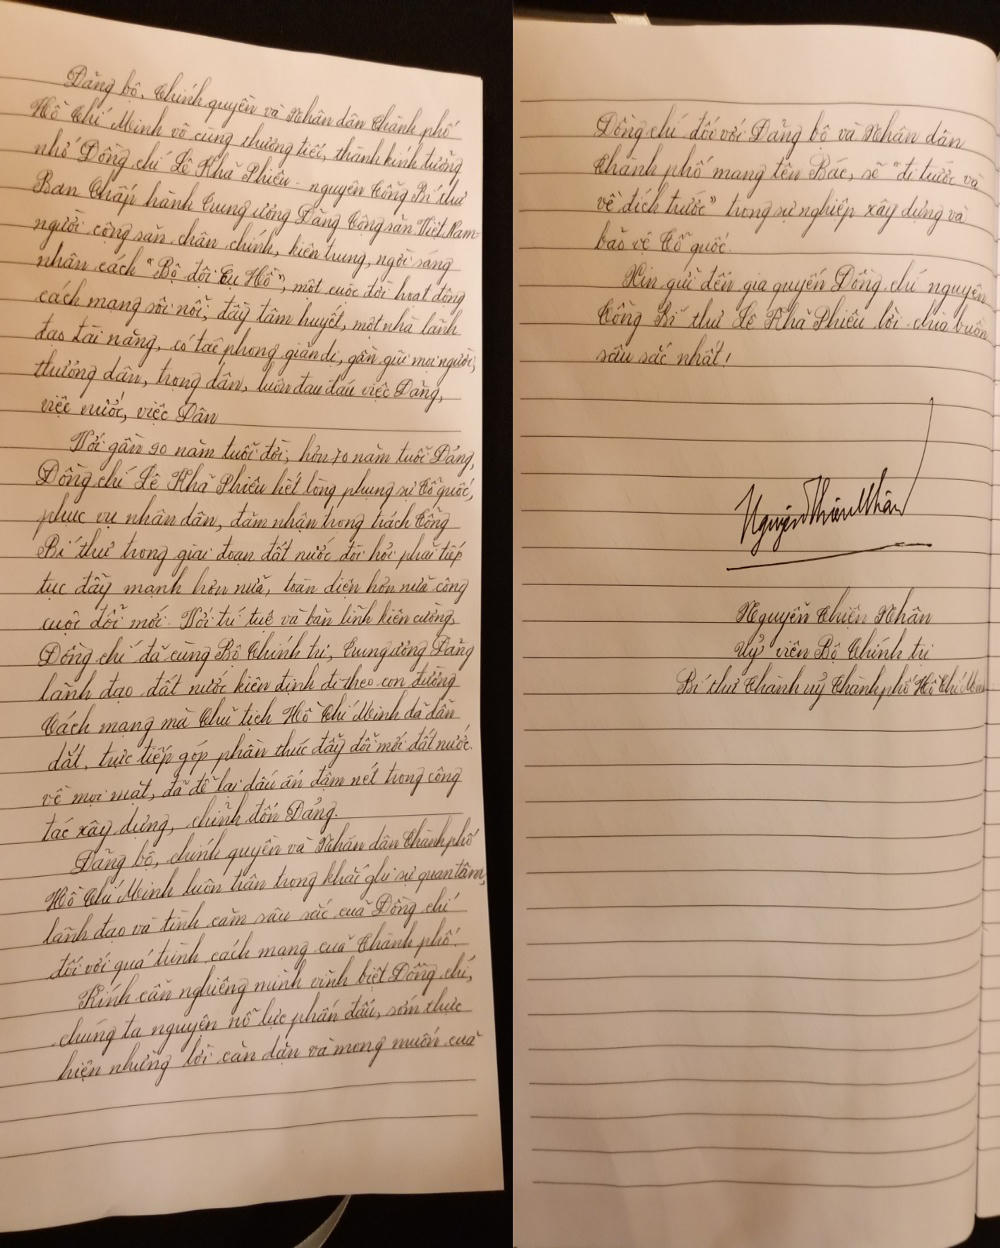 Đảng bộ, Chính quyền và Nhân dân Thành phố
Hồ Chí Minh vô cùng thương tiếc, thành kính tưởng
nhớ Đồng chí Lê Khả Phiêu - nguyên Tổng Bí thư
Ban Chấp hành Trung ương Đảng Cộng sản Việt Nam -
người cộng sản chân chính, kiên trung, ngời sáng
nhân cách "Bộ đội Cụ Hồ", một cuộc đời hoạt động
cách mạng sôi nổi, đầy tâm huyết, một nhà lãnh
đạo tài năng, có tác phong giản dị, gần gũi mọi người,
thương dân, trọng dân, luôn đau đáu việc Đảng,
việc nước, việc Dân
Với gần 90 năm tuổi đời, hơn 70 năm tuổi Đảng,
Đồng chí Lê Khả Phiêu hết lòng phụng sự Tổ quốc,
phục vụ nhân dân, đảm nhận trọng trách Tổng
Bí thư trong giai đoạn đất nước đòi hỏi phải tiếp
tục đẩy mạnh hơn nữa, toàn diện hơn nữa công
cuộc đổi mới. Với trí tuệ và bản lĩnh kiên cường,
Đồng chí đã cùng Bộ Chính trị, Trung ương Đảng
lãnh đạo đất nước kiên định đi theo con đường
Cách mạng mà Chủ tịch Hồ Chí Minh đã dẫn
dắt, trực tiếp góp phần thúc đẩy đổi mới đất nước
về mọi mặt, đã để lại dấu ấn đậm nét trong công
tác xây dựng, chỉnh đốn Đảng.
Đảng bộ, chính quyền và Nhân dân Thành phố
Hồ Chí Minh luôn trân trọng khắc ghi sự quan tâm,
lãnh đạo và tình cảm sâu sắc của Đồng chí
đối với quá trình cách mạng của Thành phố.
Kính cẩn nghiêng mình vĩnh biệt Đồng chí,
chúng ta nguyện nỗ lực phấn đấu, sớm thực
hiện những lời căn dặn và mong muốn của
Đồng chí đối với Đảng bộ và Nhân dân
Thành phố mang tên Bác, sẽ "đi trước và
về đích trước" trong sự nghiệp xây dựng và
bảo vệ Tổ quốc.
Xin gửi đến gia quyến Đồng chí nguyên
Tổng Bí thư Lê Khả Phiêu lời chia buồn
sâu sắc nhất!
Nguyễn Thiện Nhân
Nguyễn Thiện Nhân
Uỷ viên Bộ Chính trị
Bí thư Thành uỷ Thành phố Hồ Chí Minh